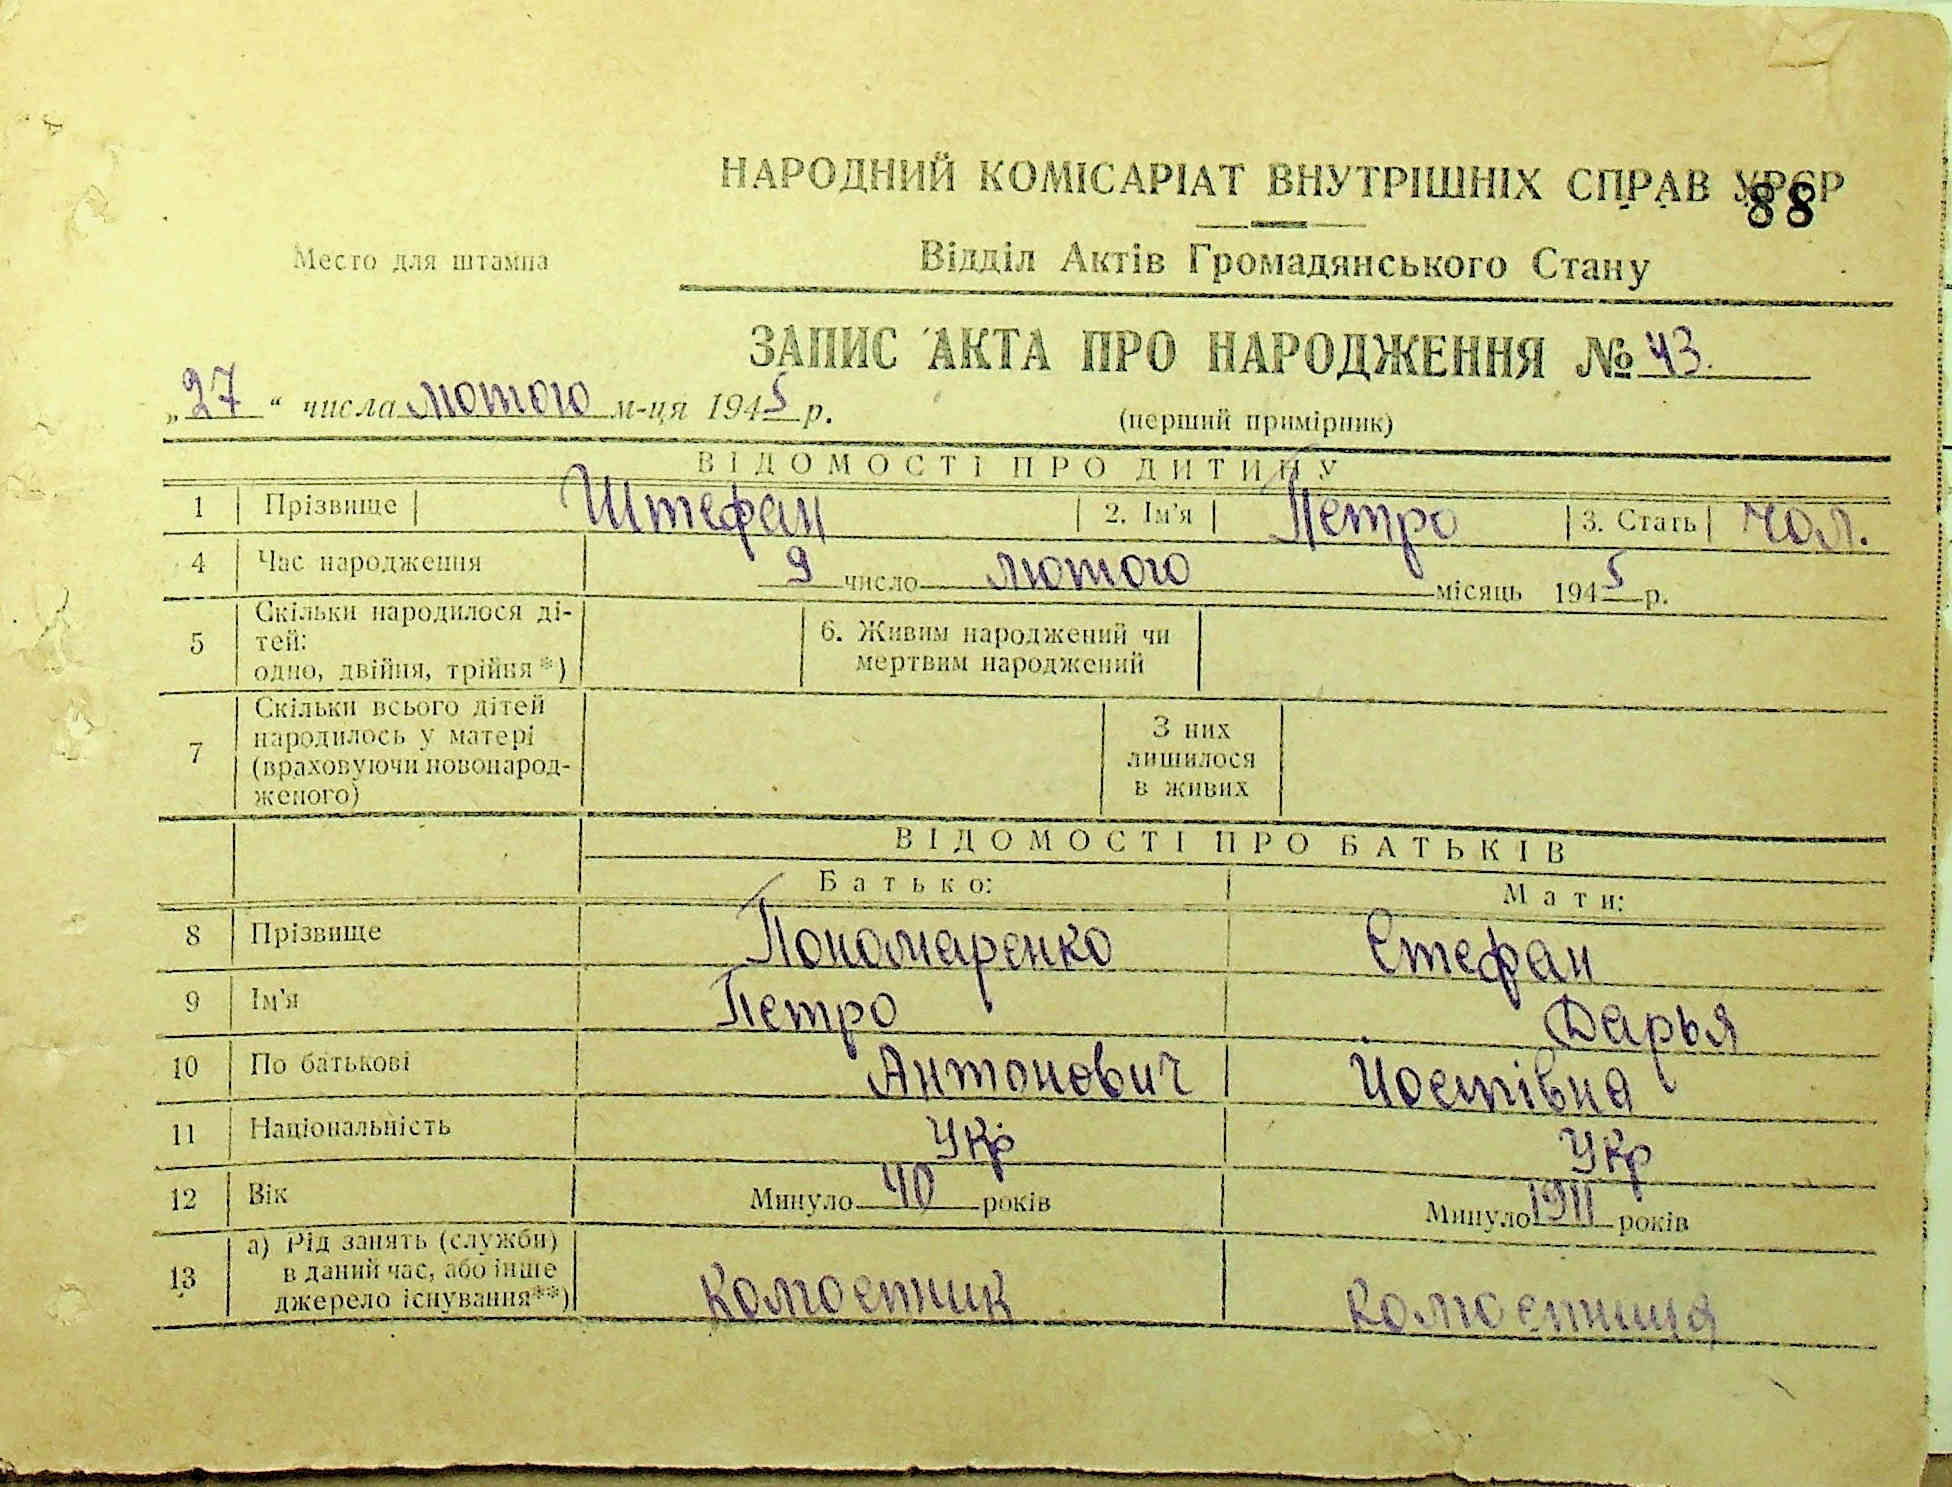 НАРОДНИЙ КОМІСАРІАТ ВНУТРІШНІХ СПРАВ УРСР
88
Место для штампа
Відділ Актів Громадянського Стану
ЗАПИС АКТА ПРО НАРОДЖЕННЯ № 43.
„27“ числа лютого м-ця 1945 р.
(перший примірник)
ВІДОМОСТІ ПРО ДИТИНУ
1 Прізвище Штефан 2. Ім'я Петро 3. Стать чол.
4 Час народження 9 число лютого місяць 1945 р.
5 Скільки народилося ді-
тей:
одно, двійня, трійня*)
6. Живим народжений чи
мертвим народжений
7 Скільки всього дітей
народилось у матері
(враховуючи новонарод-
женого)
З них
лишилося
в живих
ВІДОМОСТІ ПРО БАТЬКІВ
Батько: Мати:
8 Прізвище Пономаренко Стефан
9 Ім'я Петро Дарья
10 По батькові Антонович
11 Національність Укр Укр
12 Вік Минуло 40 років Минуло 1911 років
13 а) Рід занять (служби)
в даний час, або інше
джерело існування**)